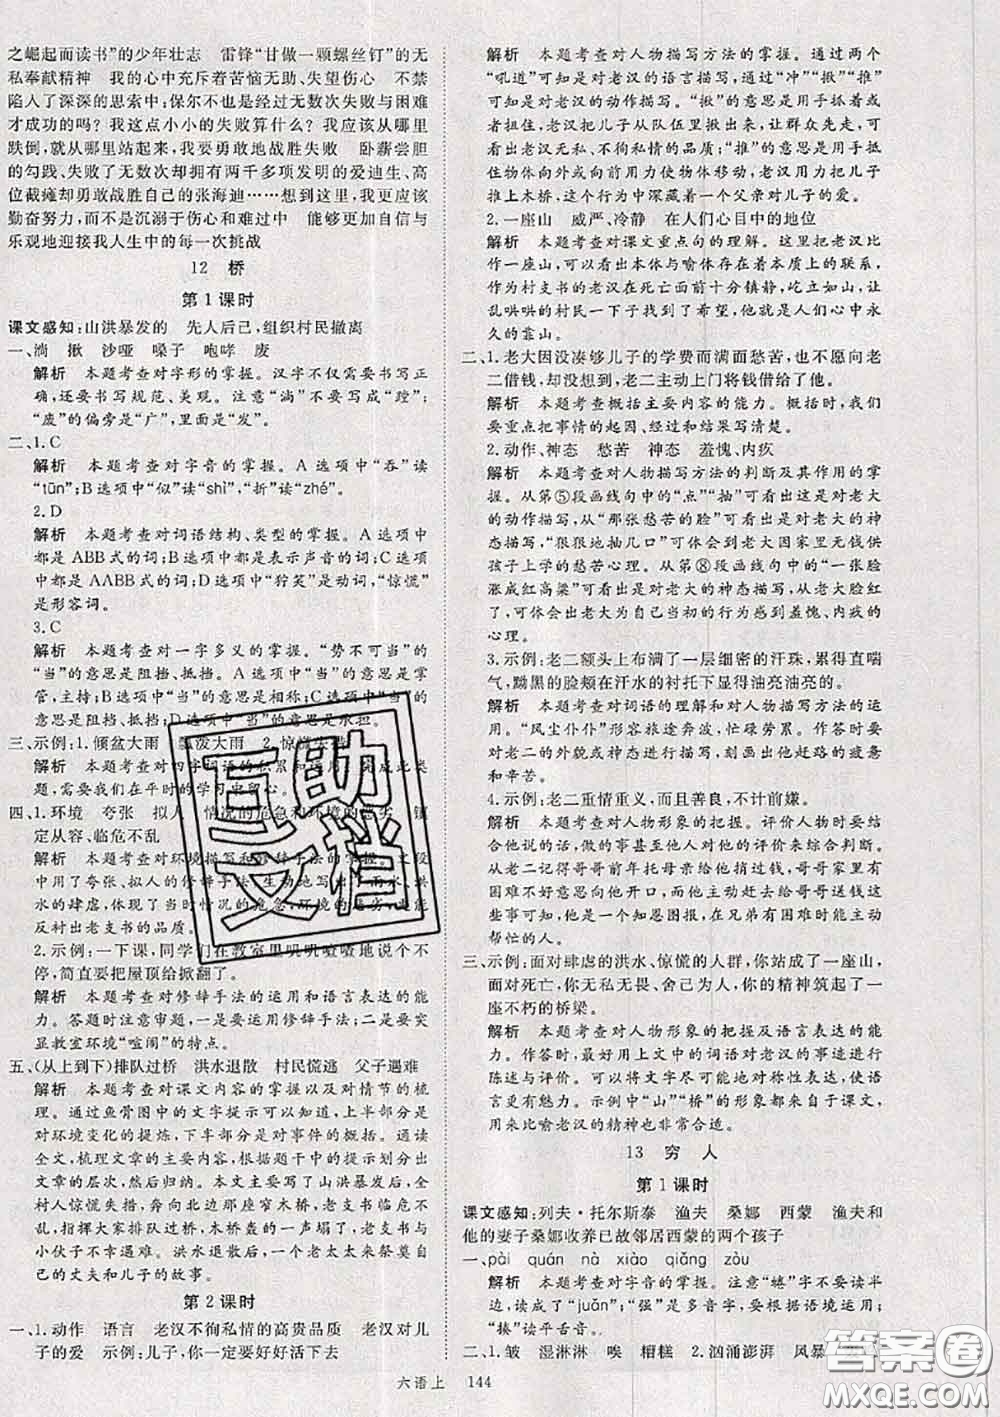 之崛起而读书”的少年壮志　雷锋“甘做一颗螺丝钉”的无
私奉献精神　我的心中充斥着苦恼无助、失望伤心　不禁
陷入了深深的思索中;保尔不也是经历了无数次失败与困难
才成功的吗?我这点小小的失败算什么?我应该从哪里
跌倒,就从哪里站起来,我要勇敢地战胜失败　卧薪尝胆
的勾践、无数次失败却拥有两千多项发明的爱迪生、高
位截瘫却勇敢战胜自己的张海迪……是啊!我更应该
勤奋努力,而不是沉溺于伤心和难过中　能够更加自信与
乐观地迎接我人生中的每一次挑战
12　桥
第1课时
课文感知:山洪暴发的　先人后己,组织村民撤离
一、淌　揪　沙哑　嗓子　咆哮　废
解析　本题考查对字形的掌握。汉字不仅需要书写正
确,还要书写规范、美观。注意“淌”不要写成“蹚”;
“废”的偏旁是“广”,里面是“发”。
二、1.C
解析　本题考查对字音的掌握。A选项中“吞”读
“tūn”;B选项中“似”读“shì”,“折”读“zhé”。
2.D
解析　本题考查对词语结构、类型的掌握。A选项中
都是ABB式的词;B选项中都是表示声音的词;C选项中
都是AABB式的词;D选项中“狞笑”是动词,“惊慌”
是形容词。
3.C
解析　本题考查对一字多义的掌握。“势不可当”的
“当”的意思是阻挡、抵挡。A选项中“当”的意思是掌
管,主持;B选项中“当”的意思是相称;C选项中“当”的意
思是阻挡、抵挡;D选项中“当”的意思是承担。
三、示例:1.倾盆大雨　瓢泼大雨　2.惊慌失措
解析　本题考查对四字词语的积累和运用。完成此类
题,需要我们在平时的学习中留心。
四、1.环境　夸张　拟人　情况的危急和环境的恶劣　镇
定从容、临危不乱
解析　本题考查对环境描写和修辞手法的掌握。文段
中用了夸张、拟人的修辞手法,生动地写出了雨、洪
水的肆虐,体现了当时情况的危急、环境的恶劣,更能
反衬出老支书的品质。
2.示例:一下课,同学们在教室里叽叽喳喳地说个不
停,简直要把屋顶给掀翻了。
解析　本题考查对修辞手法的运用和语言表达的能
力。答题时注意审题,一是要运用修辞手法;二是要突
显教室环境“喧闹”的特点。
五、(从上到下)排队过桥　洪水退散　村民慌逃　父子遇难
解析　本题考查对课文内容的掌握以及对情节的梳
理。通过鱼骨图中的文字提示可以知道,上半部分是
对环境变化的提炼,下半部分是对事件的概括。通读
全文,梳理文章的内容,根据题干中的提示分别找出
文章的层次,概括出答案。本文主要写了山洪暴发后,全
村人惊慌失措,奔向北面那座窄窄的木桥,老支书沉着地
指挥大家排队过桥,木桥轰的一声塌了,老支书与
小伙子不幸遇难。洪水退散后,一个老太太来祭奠自
己的丈夫和儿子的故事。
第2课时
一、1.动作　语言　老汉不徇私情的高贵品质　老汉对儿
子的爱　示例:儿子,你一定要好好活下去
解析　本题考查对人物描写方法的掌握。通过两个
“吼道”可知是对老汉的语言描写。通过“冲”“揪”“推”
可知是对老汉的动作描写。“揪”的意思是用手抓着或
者扭住,老汉把儿子从队伍里揪出来,让群众先走,可
表示老汉无私、不徇私情的高贵品质。“推”的意思是手
抵住物体向外或向前用力使物体移动,老汉用力把儿子
推上木桥,这个行为中深深藏着一个父亲对儿子的爱。
2.一座山　威严、冷静　在人们心目中的地位
解析　本题考查对课文重点句的理解。这里把老汉比
作一座山,可以看出本体与喻体存在着本质上的联系,
可以看出村支书的老汉在死亡面前十分镇静,屹立如山,让
乱哄哄的村民一下子找到了希望,他是人们心中永
久的靠山。
二、1.老大因没凑够儿子的学费而满面愁苦,也不愿向老
二借钱,却没想到,老二主动上门将钱借给了他。
解析　本题考查概括主要内容的能力。概括时,我们
要重点把事情的起因、经过和结果写清楚。
2.动作、神态　愁苦　神态　羞愧、内疚
解析　本题考查对人物描写方法的判断及其作用的掌
握。从第⑤段画线句中的“点”“抽”可看出这是对老大
的动作描写,从“那张愁苦的脸”可看出这是对老大的神
态描写,“狠狠地抽几口”可体会出老大因家里无钱供
孩子上学的愁苦心理。从第⑧段画线句中的“一张脸
涨成红高粱”可看出这是对老大的神态描写,从中
可体会出老大为自己当初的行为感到羞愧、内疚的
心理。
3.示例:老二额头上布满了一层细密的汗珠,累得直喘
气,黝黑的脸颊在汗水的衬托下显得油亮油亮的。
解析　本题考查对词语的理解和对人物描写方法的运
用。“风尘仆仆”形容旅途奔波,忙碌劳累。作答时,需
要对老二的外貌或神态进行描写,突出他赶路的疲惫
和辛苦。
4.示例:老二重情重义,而且善良,不计前嫌。
解析　本题考查对人物形象的把握。评价人物要结
合他说的话、做的事甚至他人对他的评价来综合判断。
从课文的记得哥哥前年托母亲给他捎过钱,哥哥家里有
困难不好意思向他开口,他就主动送钱给哥哥送钱这
些事可知,他是一个知恩图报,在兄弟有困难时能主动
帮忙的人。
三、示例:面对肆虐的洪水、惊慌的人群,你站成了一座山,
面对死亡,你无私无畏、舍己为人,你的精神筑起了一
座不朽的桥梁。
解析　本题考查对人物形象的把握及语言表达的能
力。作答时,要结合上文中的词语对老汉的事迹进行
陈述与评价。可以将文字尽可能对称性表达,使语言
更有感染力。示例中“山”“桥”的形象都来自于课文,
用来比喻老汉的精神也非常合适。
13　穷　人
第1课时
课文感知:列夫·托尔斯泰　渔夫　桑娜　西蒙　渔夫和
他的妻子桑娜收养已故邻居西蒙的两个孩子
一、pài　quán　nà　xiào　qiǎng　zòu
解析　本题考查对字音的掌握。注意“蜷”不要读半
边,不要读成“juǎn”;“强”是多音字,要根据语境运用;
“揍”读平舌音。
二、1.皱　湿淋淋　唉　糟糕　2.汹涌澎湃　风暴
六语上　144
互助
文档
答案圈
MXQE.COM